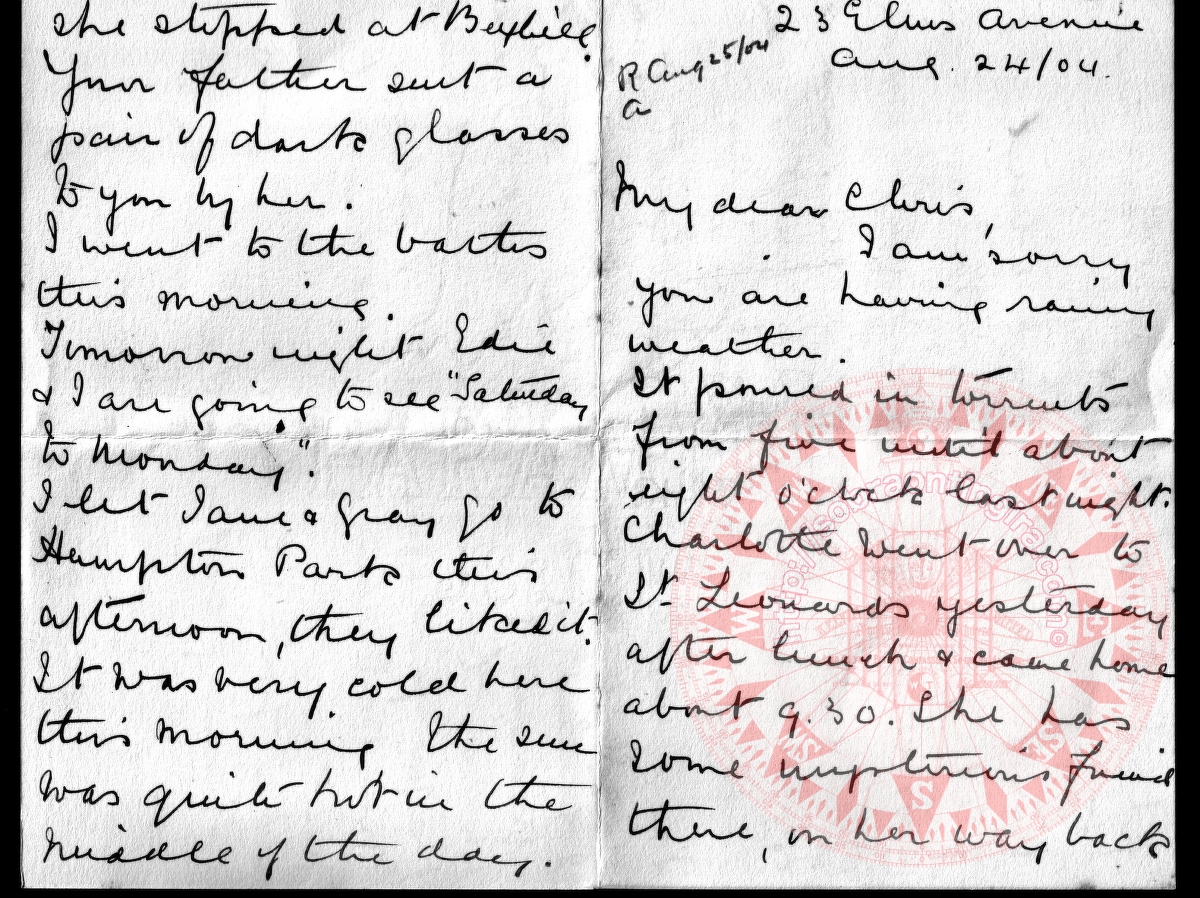 23 Elms Avenue
Aug. 24/04.
R Aug 25/04
a
My dear Chris,
I am sorry
you are having rainy
weather.
It poured in torrents
from five until about
eight o'clock last night.
Charlotte went over to
St. Leonards yesterday
after lunch & came home
about 9.30. She has
some mysterious friend
there, on her way back
she stopped at Bexhill.
Your father sent a
pair of dark glasses
to you by her.
I went to the baths
this morning.
Tomorrow night Edie
& I are going to see "Saturday
to Monday".
I let Jane & Gray go to
Hampton Park this
afternoon, they liked it.
It was very cold here
this morning the sun
was quite hot in the
middle of the day.